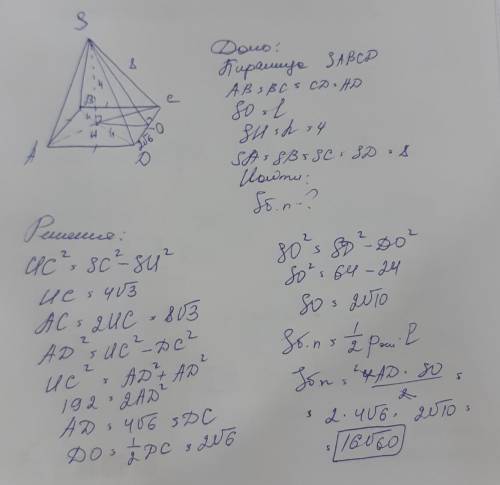 S
8
B
C
4
4
O
A
H
4
2√6
D
Дано:
Пирамида SABCD
AB = BC = CD = AD
SO = l
SH = h = 4
SA = SB = SC = SD = 8
Найти:
Sб.п - ?
Решение:
HC² = SC² - SH²
HC = 4√3
AC = 2HC = 8√3
AD² = HC² - DC²
HC² = AD² + AD²
192 = 2AD²
AD = 4√6 = DC
DO = 1/2 DC = 2√6
SO² = SD² - DO²
SO² = 64 - 24
SO = 2√10
Sб.п = 1/2 Pосн. l
Sб.п = 4AD · SO / 2 =
= 2 · 4√6 · 2√10 =
= 16√60